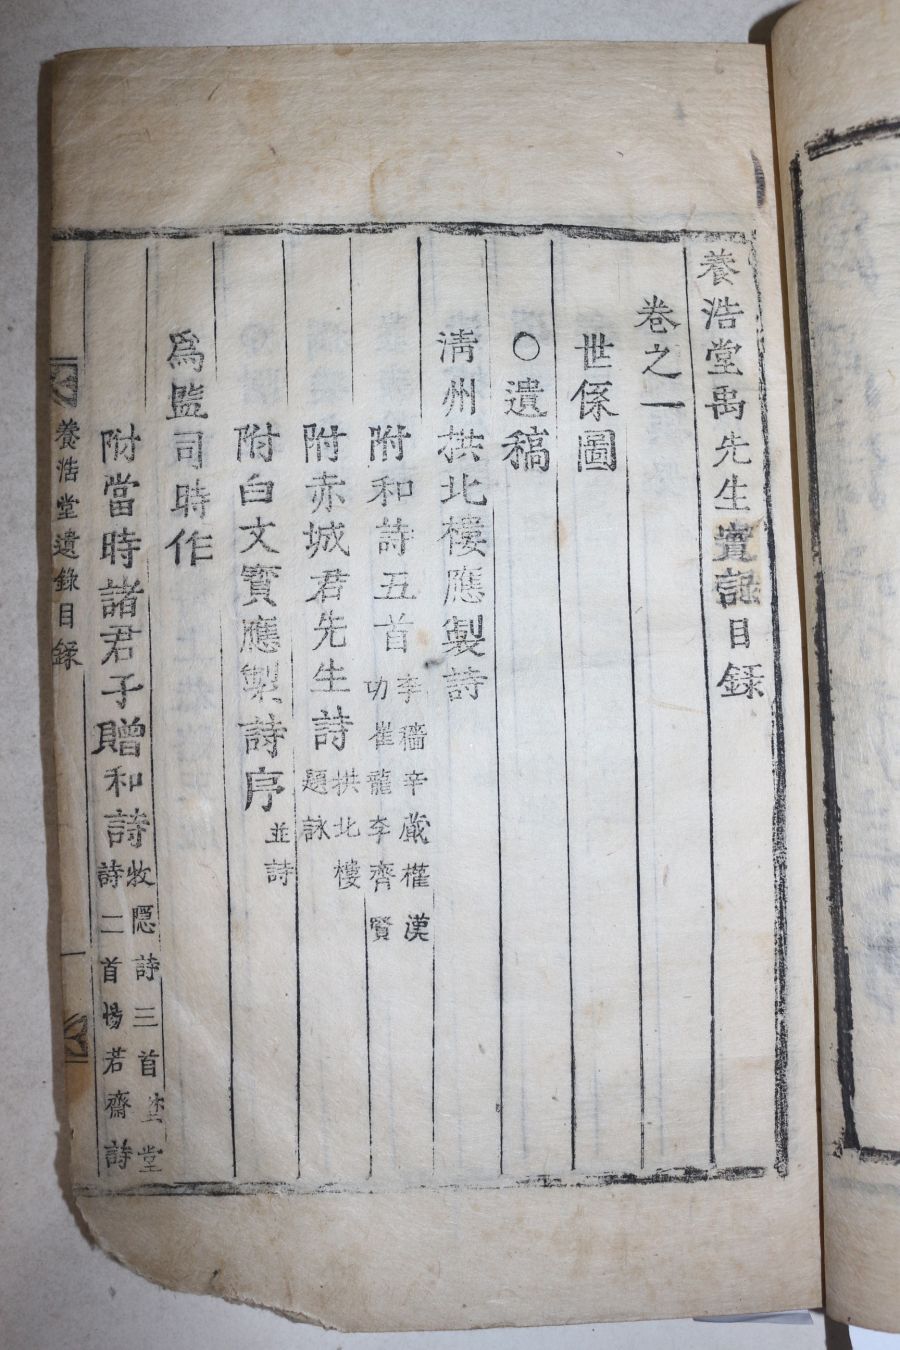 養浩堂禹先生實記目錄
卷之一
世係圖
○遺稿
淸州拱北樓應製詩
附和詩五首 李穡辛蕆權漢
功崔龍李齊賢
附赤城君先生詩 拱北樓
題詠
附白文寶應製詩序 並詩
爲監司時作
附當時諸君子贈和詩 牧隱詩三首 堂
詩二首惕若齋詩
養浩堂遺錄目錄 一